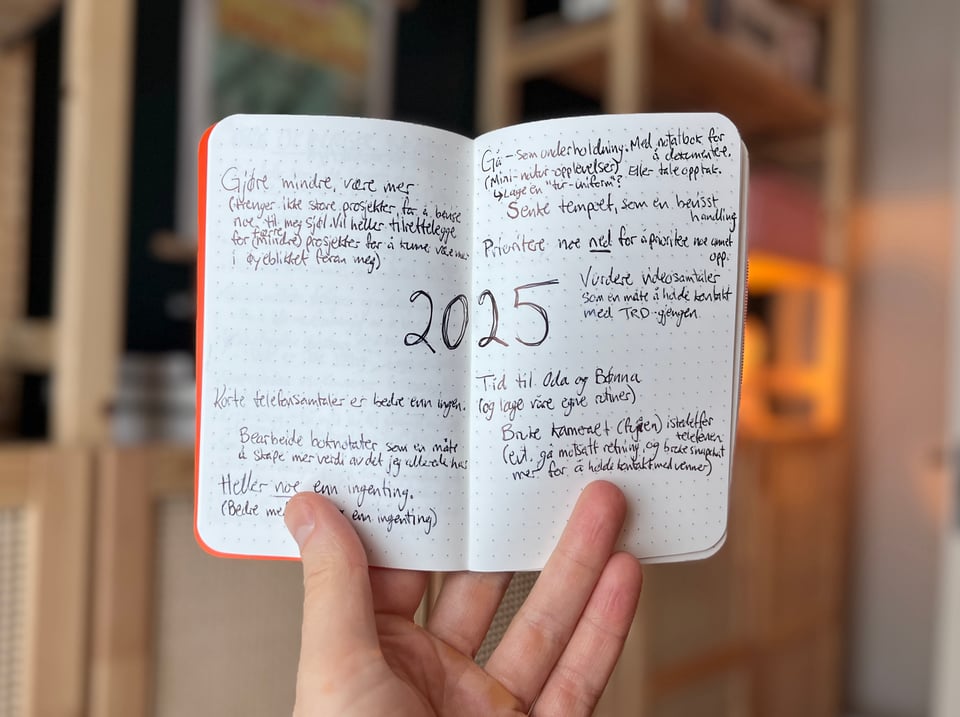 Gjøre mindre, være mer
(Trenger ikke store prosjekter for å bevise
noe til meg sjøl. Vil heller tilrettelegge
færre
for (mindre) prosjekter for å kunne være mer
i øyeblikket foran meg)
2025
Korte telefonsamtaler er bedre enn ingen.
Bearbeide boknotater som en måte
å skape mer verdi av det jeg allerede har
Heller noe enn ingenting.
(Bedre med enn ingenting)
Gå – som underholdning. Med notatbok for
å dokumentere.
(Mini-natur-opplevelser) Eller taleopptak.
↳ Lage en "tur-uniform"?
Senke tempoet, som en bevisst
handling
Prioritere noe ned for å prioritere noe annet
opp.
Vurdere videosamtaler
som en måte å holde kontakt
med TRD-gjengen.
Tid til Oda og Bønna
(og lage våre egne rutiner)
Bruke kameraet (fujien) istedetfor
telefonen
(evt. gå motsatt retning, og bruke snapchat
mer for å holde kontakt med venner)